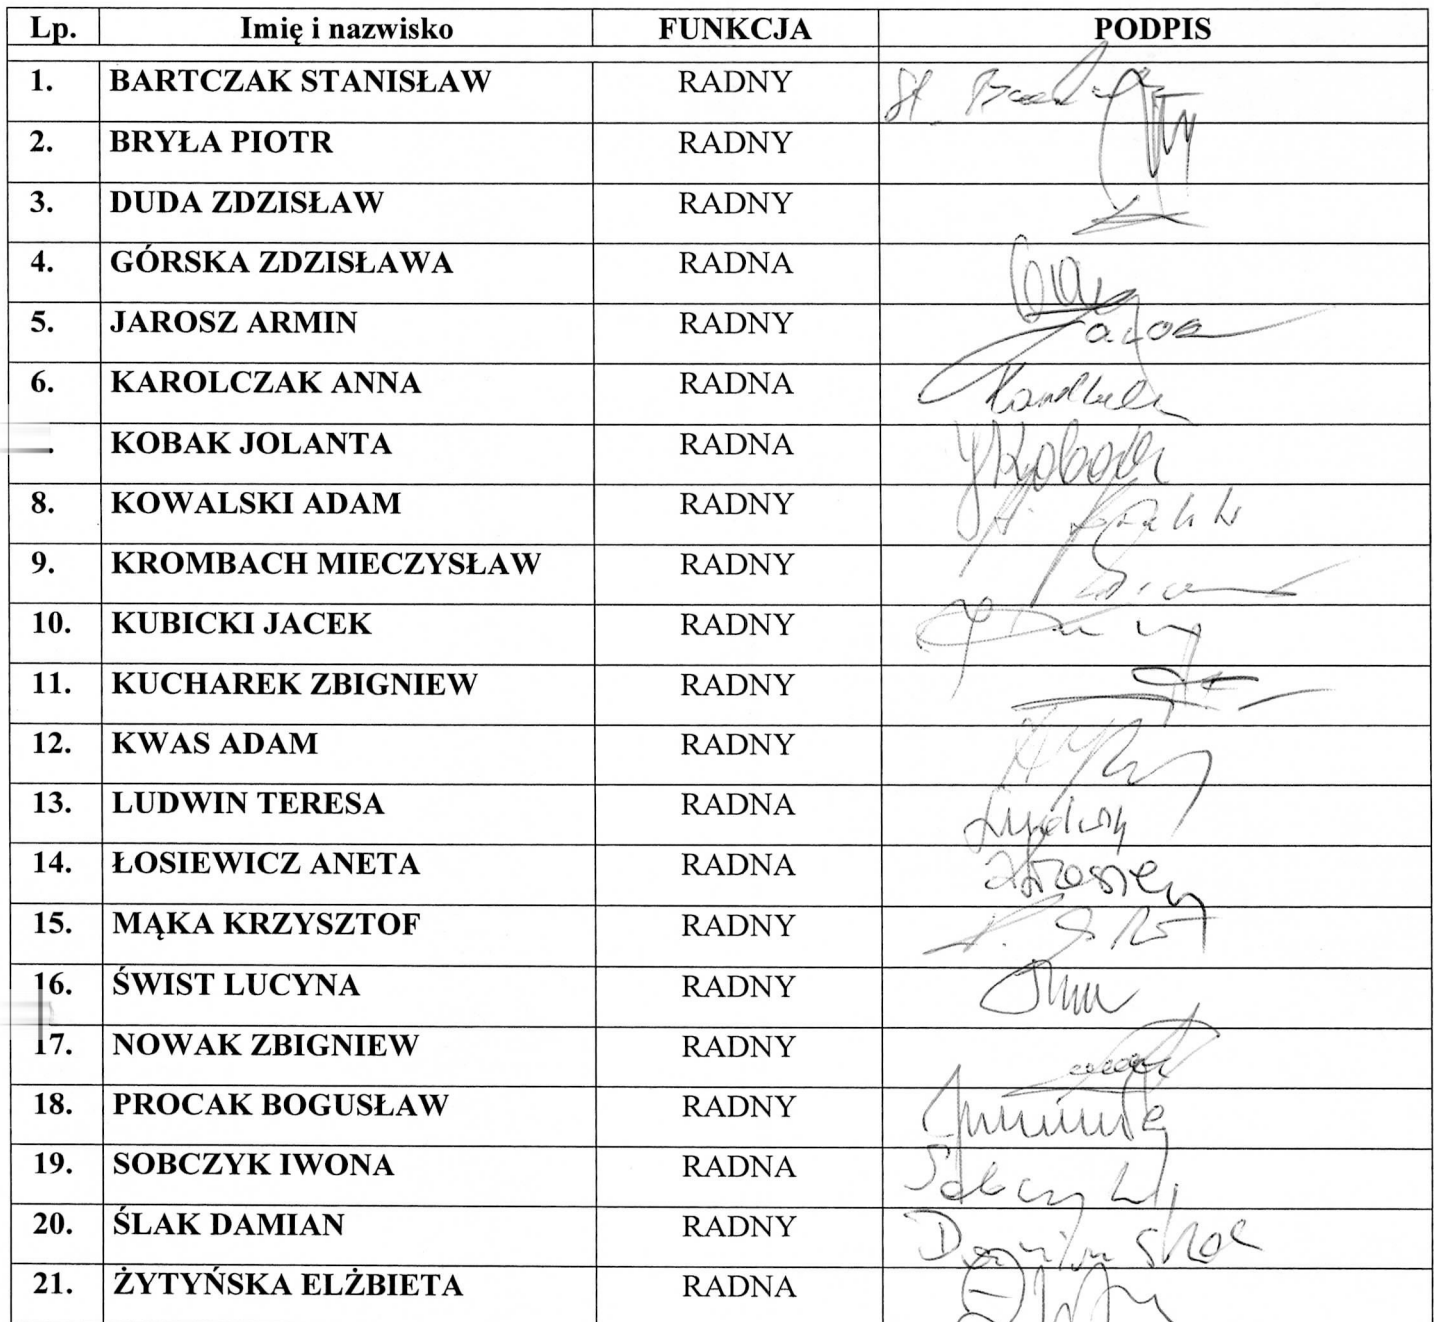 Lp. Imię i nazwisko FUNKCJA PODPIS
1. BARTCZAK STANISŁAW RADNY St.
2. BRYŁA PIOTR RADNY
3. DUDA ZDZISŁAW RADNY
4. GÓRSKA ZDZISŁAWA RADNA
5. JAROSZ ARMIN RADNY
6. KAROLCZAK ANNA RADNA
. KOBAK JOLANTA RADNA
8. KOWALSKI ADAM RADNY
9. KROMBACH MIECZYSŁAW RADNY
10. KUBICKI JACEK RADNY
11. KUCHAREK ZBIGNIEW RADNY
12. KWAS ADAM RADNY
13. LUDWIN TERESA RADNA
14. ŁOSIEWICZ ANETA RADNA
15. MĄKA KRZYSZTOF RADNY
16. ŚWIST LUCYNA RADNY
17. NOWAK ZBIGNIEW RADNY
18. PROCAK BOGUSŁAW RADNY
19. SOBCZYK IWONA RADNA
20. ŚLAK DAMIAN RADNY
21. ŻYTYŃSKA ELŻBIETA RADNA